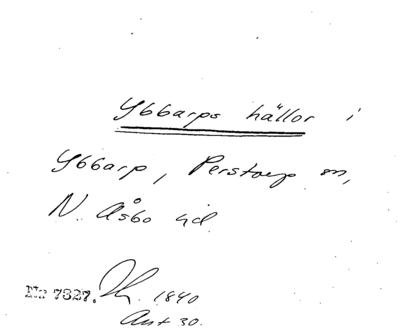 Ybbarps hällor i
Ybbarp, Perstorp sn,
N. Åsbo hd.
No 7327. 1840
Ant 30.